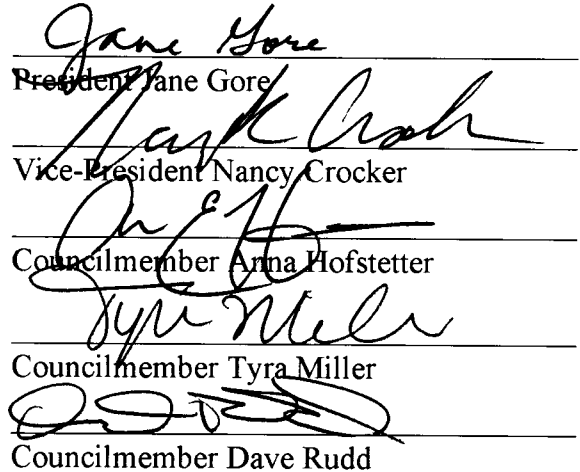 Jane Gore
President Jane Gore
Vice-President Nancy Crocker
Councilmember Anna Hofstetter
Tyra Miller
Councilmember Tyra Miller
Councilmember Dave Rudd